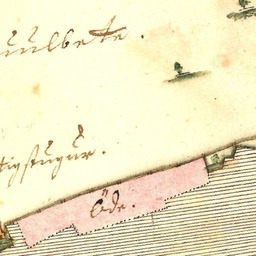 Muulbete.
tigstugur.
Öde.